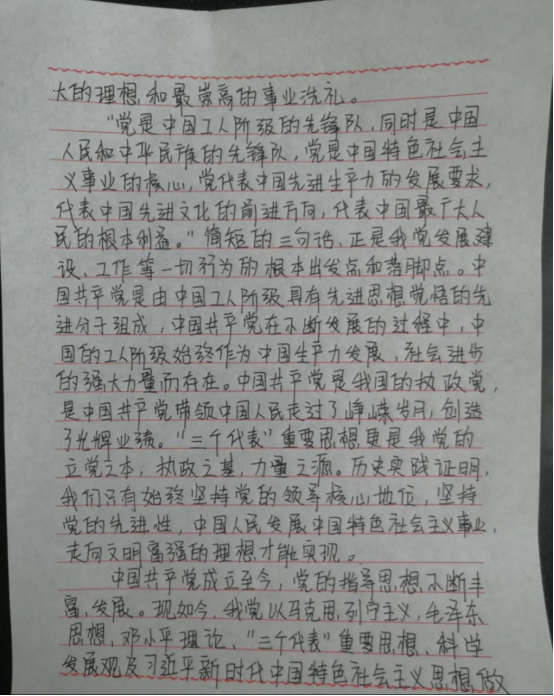 大的理想和最崇高的事业洗礼。
"党是中国工人阶级的先锋队,同时是中国
人民和中华民族的先锋队,党是中国特色社会主
义事业的核心,党代表中国先进生产力的发展要求,
代表中国先进文化的前进方向,代表中国最广大人
民的根本利益。"简短的三句话,正是我党发展建
设、工作等一切行为的根本出发点和落脚点。中
国共产党是由中国工人阶级具有先进思想觉悟的先
进分子组成,中国共产党在不断发展的过程中,中
国的工人阶级始终作为中国生产力发展、社会进步
的强大力量而存在。中国共产党是我国的执政党,
是中国共产党带领中国人民走过了峥嵘岁月,创造
了光辉业绩。"三个代表"重要思想更是我党的
立党之本,执政之基,力量之源。历史实践证明,
我们只有始终坚持党的领导核心地位,坚持
党的先进性,中国人民发展中国特色社会主义事业,
走向文明富强的理想才能实现。
中国共产党成立至今,党的指导思想不断丰
富、发展。现如今,我党以马克思列宁主义、毛泽东
思想、邓小平理论、"三个代表"重要思想、科学
发展观及习近平新时代中国特色社会主义思想做